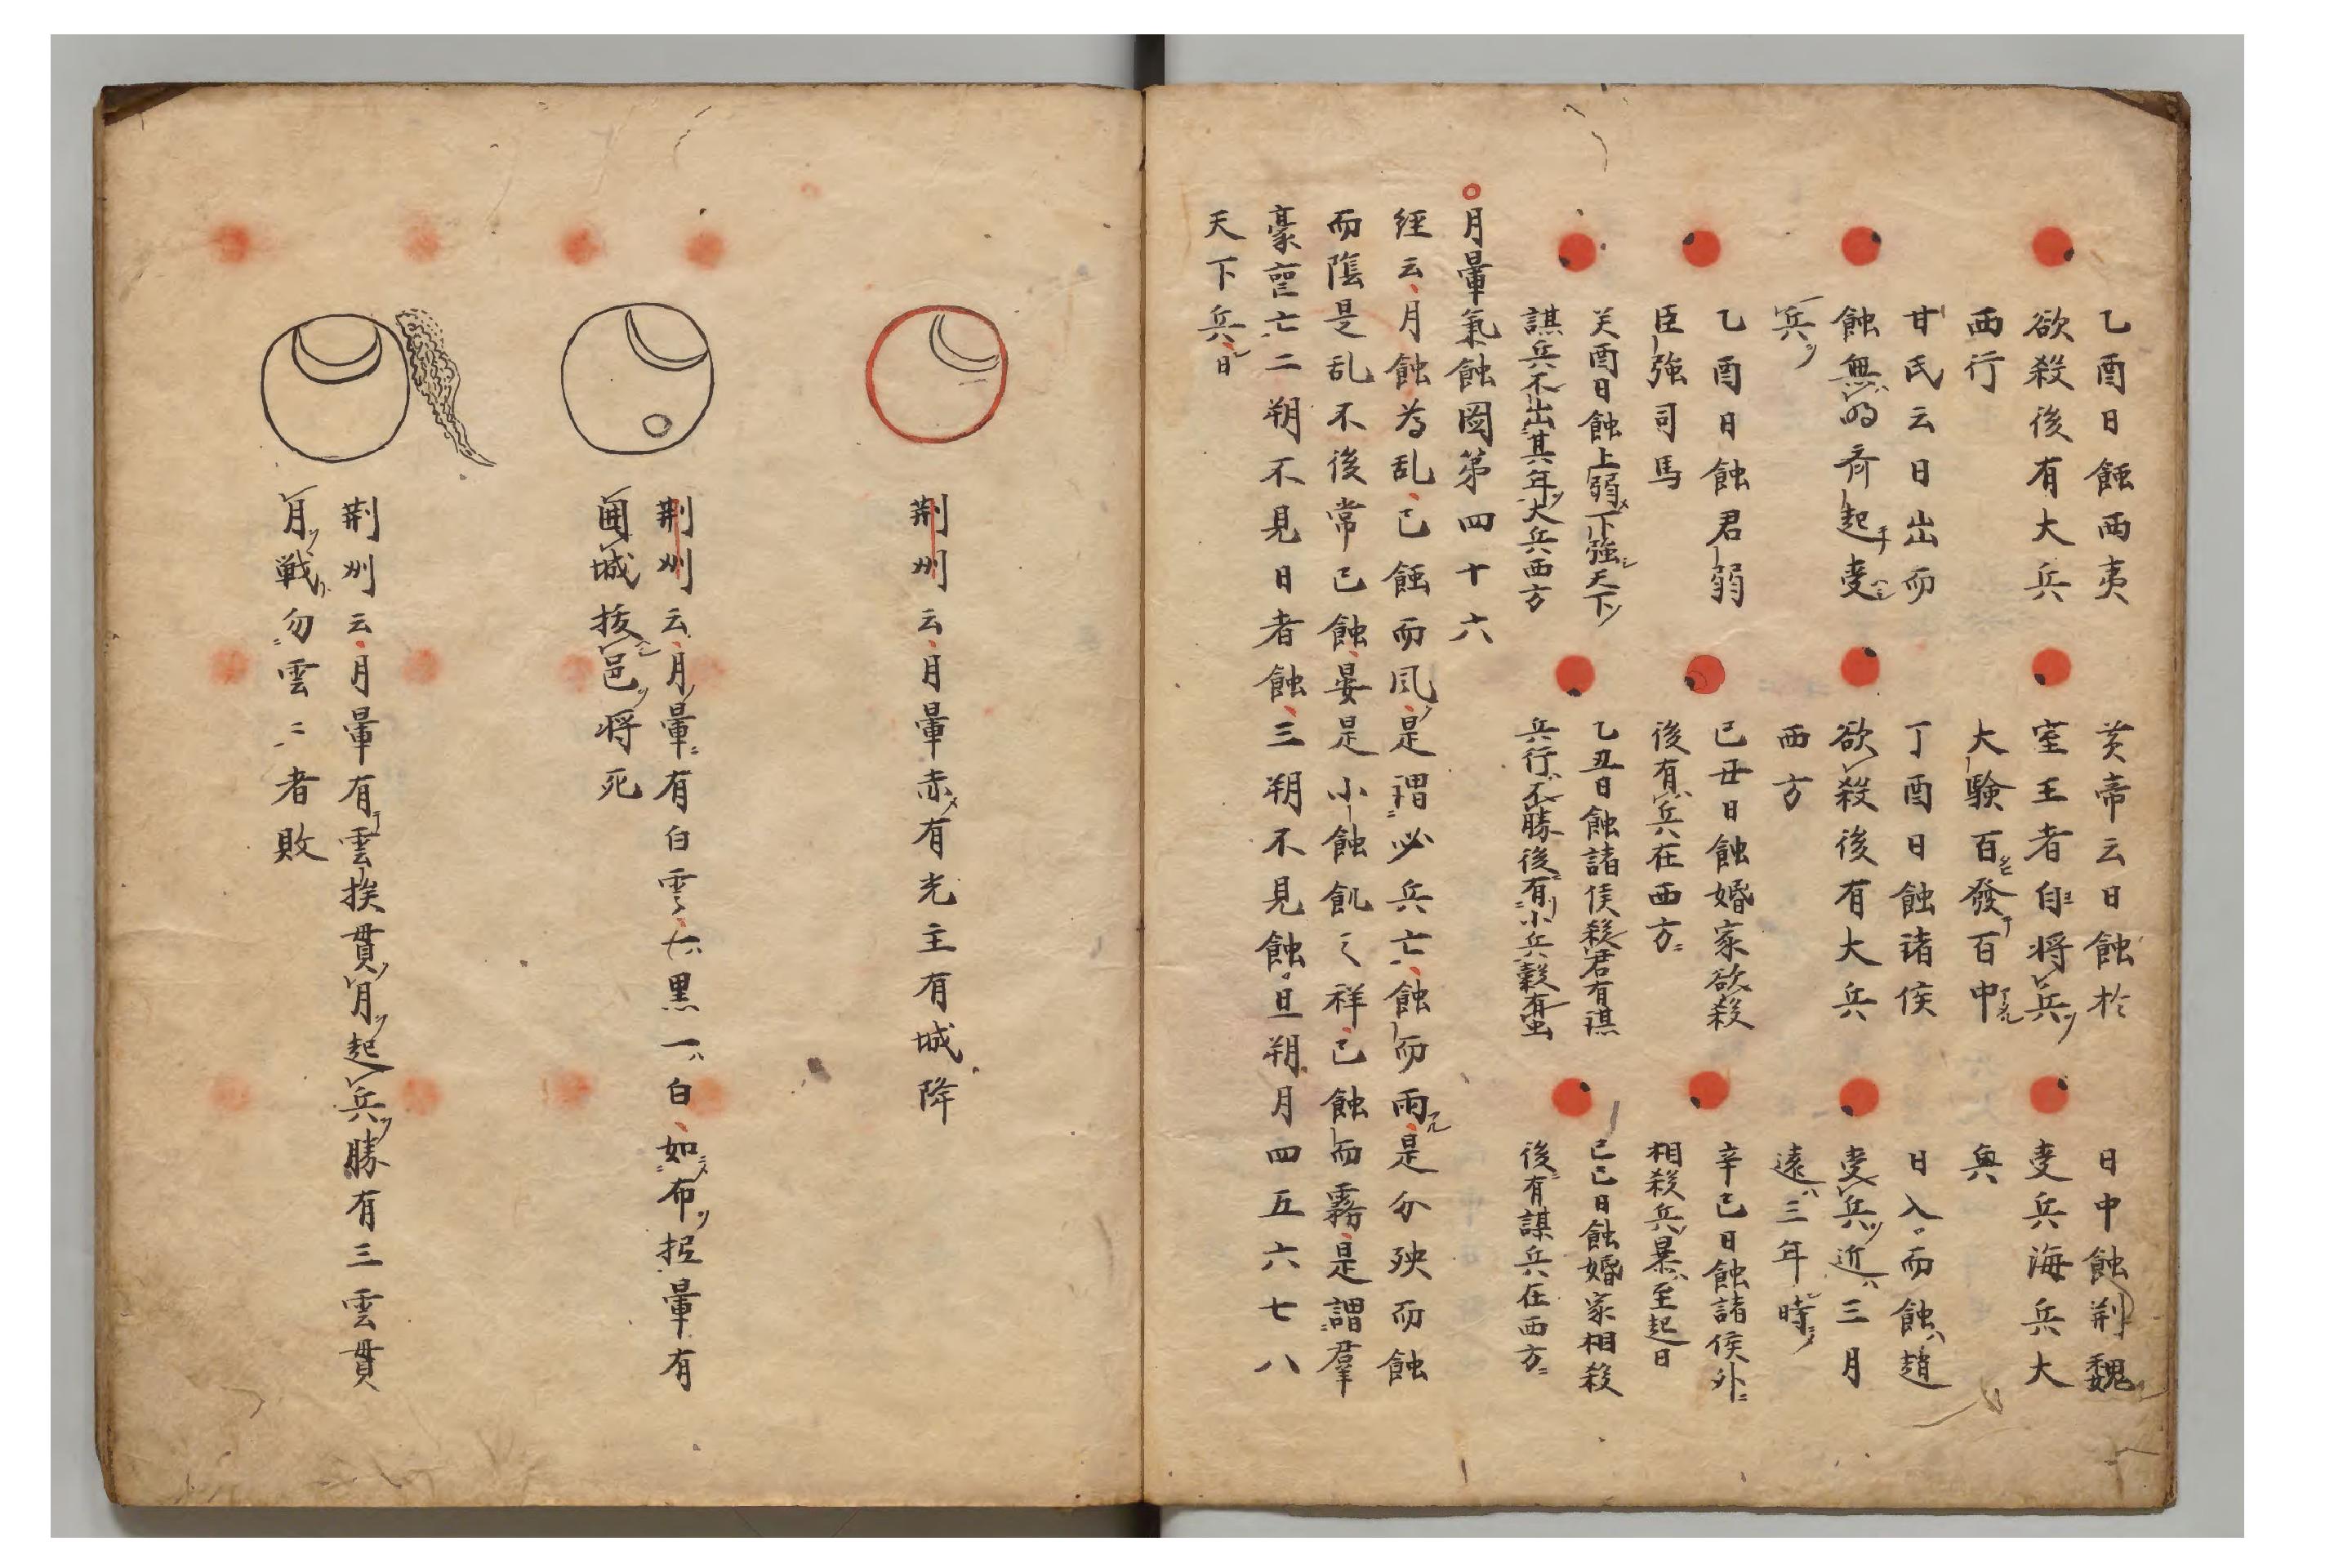 乙酉日蝕西夷
欲殺後有大兵
西行
黄帝云日蝕於
室王者自将兵
大験百發百中
日中蝕荆魏
変兵海兵大
與
甘氏云日出而
蝕無明齊起変
兵
丁酉日蝕诸侯
欲殺後有大兵
西方
日入而蝕趙
変兵近三月
遠三年時
乙酉日蝕君弱
臣強司馬
己丑日蝕婚家欲殺
後有兵在西方
辛已日蝕諸侯外
相殺兵暴至起日
癸酉日蝕上弱下強天下
謀兵不出其年大兵西方
乙丑日蝕諸侯殺君有謀
兵行不勝後有小兵穀有虫
己已日蝕婚家相殺
後有謀兵在西方
月暈氣蝕図第四十六
経云月蝕為乱已蝕而風是謂必兵亡蝕而雨是分殃而蝕
而陰是乱不後常已蝕晏是小蝕飢之祥已蝕而霧是謂羣
豪亡二朔不見日者蝕三朔不見蝕旦朔月四五六七八
天下兵日
荆州云月暈赤有光主有城降
荆州云月暈有白雲六黒一白如布拒暈有
囲城抜邑将死
荆州云月暈有雲挨貫月起兵勝有三雲貫
月戦勿雲二者敗